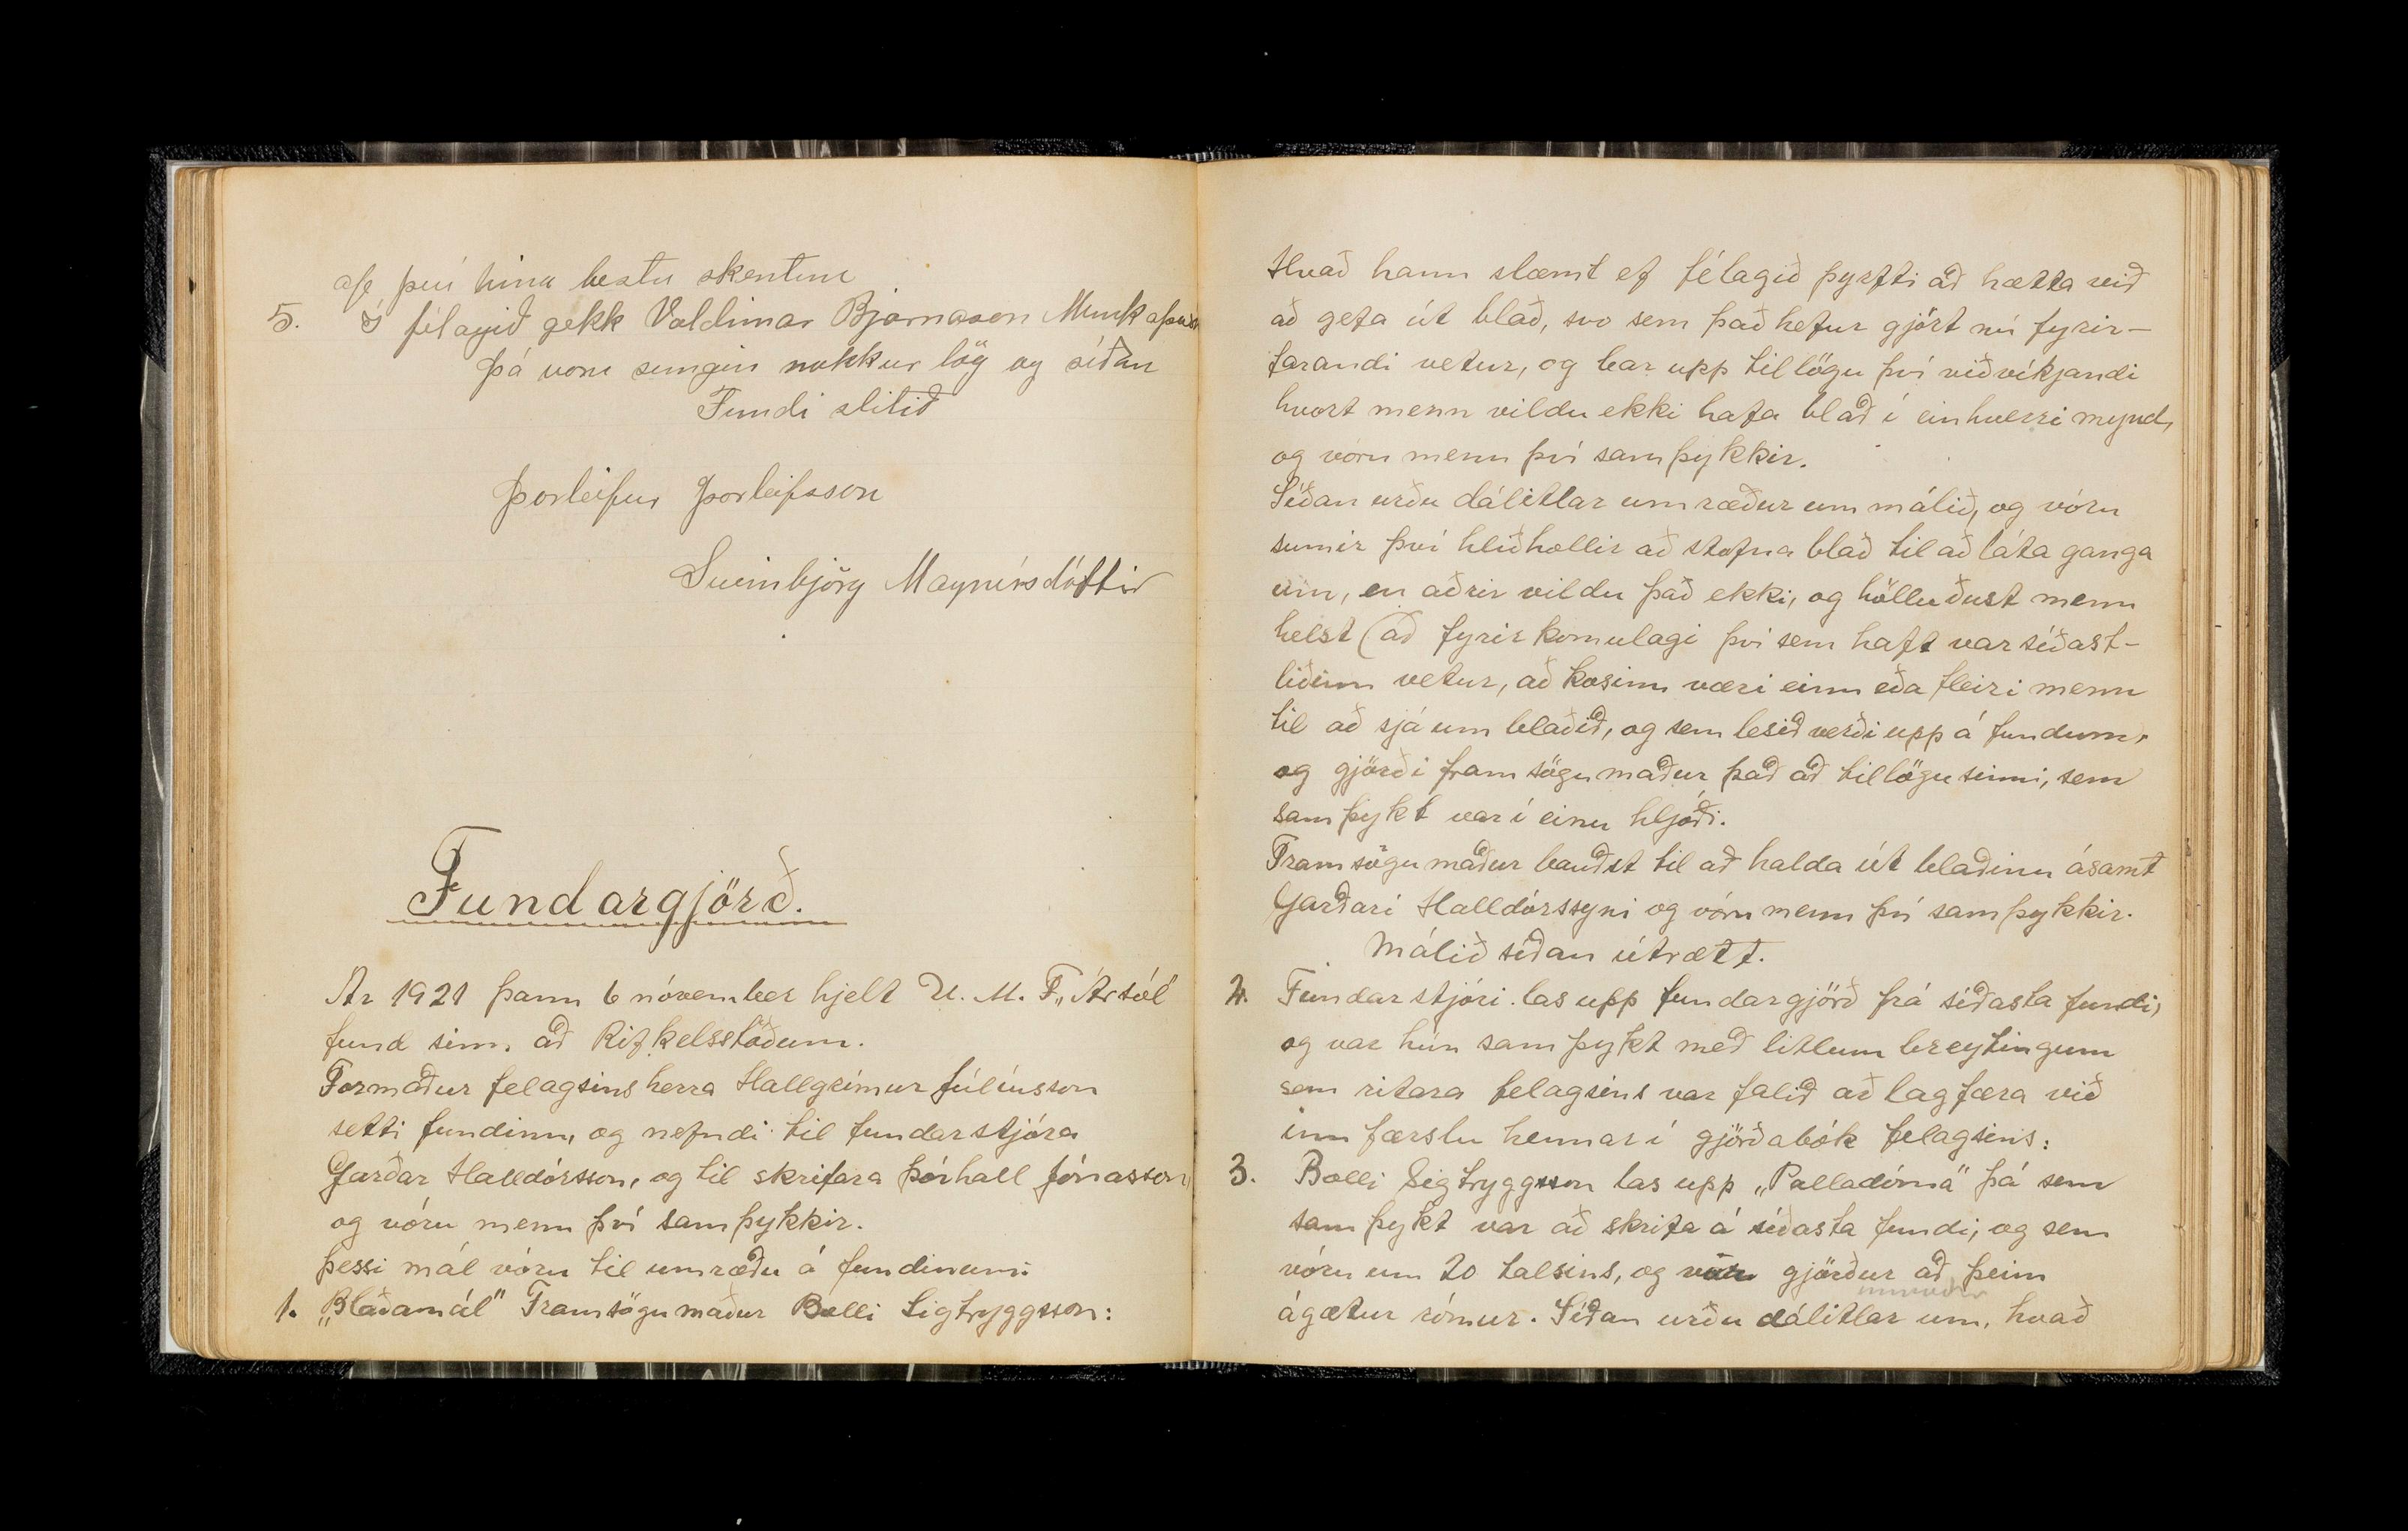 af því hina bestu skemtun
5. Í félagið gekk Valdimar Bjarnason Munkaþverá
Þá voru sungin nokkur lög og síðan
Fundi slitið
Þorleifur Þorleifsson
Sveinbjörg Magnúsdóttir
Fundargjörð.
Ár 1921 þann 6 nóvember hjelt U. M. F. „Ársól
fund sinn að Rifkelsstöðum.
Formaður felagsins herra Hallgrímur Júlíusson
setti fundinn, og nefndi til fundarstjóra
Garðar Halldórsson, og til skrifara Þórhall Jónasson,
og vóru menn því samþykkir.
Þessi mál vóru til umræðu á fundinum:
1. „Blaðamál" Framsögumaður Bolli Sigtryggsson:
Hvað hann slæmt ef félagið þyrfti að hætta við
að gefa út blað, svo sem það hefur gjört nú fyrir-
farandi vetur, og bar upp tillögu því viðvíkjandi
hvort menn vildu ekki hafa blað í einhverri mynd,
og vóru menn því samþykkir.
Síðan urðu dálitlar umræður um málið, og vóru
sumir því hliðhollir að stofna blað til að láta ganga
um, en aðrir vildu það ekki, og hölluðust menn
helst (að fyrirkomulagi því sem haft var síðast-
liðinn vetur, að kosinn væri einn eða fleiri menn
til að sjá um blaðið, og sem lesið verði upp á fundum,
og gjörði framsögumaður það að tillögu sinni, sem
samþykt var í einu hljóði.
Framsögumaður bauðst til að halda út blaðinu ásamt
Garðari Halldórssyni og vóru menn því samþykkir.
Málið síðan útrætt.
2. Fundarstjóri las upp fundargjörð frá síðasta fundi,
og var hún samþykt með litlum breytingum
sem ritara felagsins var falið að lagfæra við
innfærslu hennar í gjörðabók felagsins:
3. Bolli Sigtryggsson las upp „Palladóma" þá sem
samþykt var að skrifa á síðasta fundi, og sem
vóru um 20 talsins, og var gjörður að þeim
ágætur rómur. Síðan urðu dálitlar umræður um, hvað